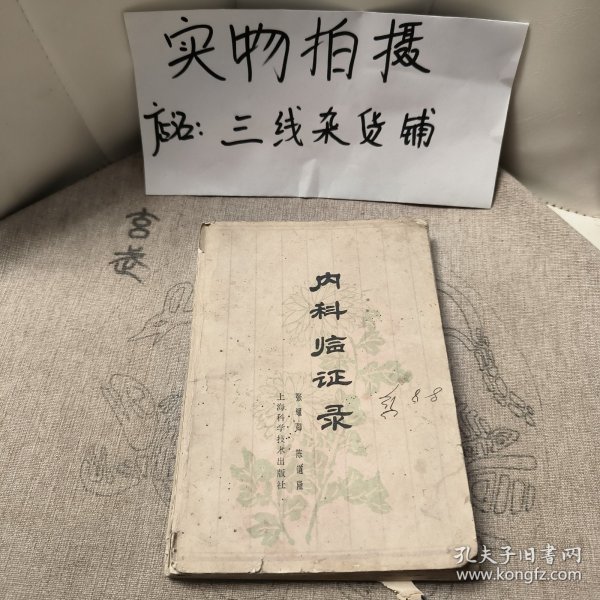 实物拍摄
店名：三线杂货铺
玄武
内科临证录
张耀卿 陈道隆
上海科学技术出版社
88
孔夫子旧书网
www.kongfz.com